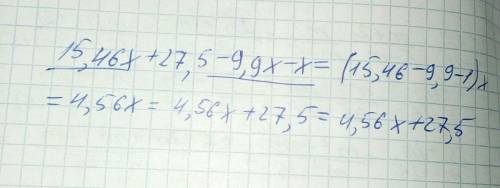 15,46x+27,5-9,9x-x=(15,46-9,9-1)x
=4,56x=4,56x+27,5=4,56x+27,5